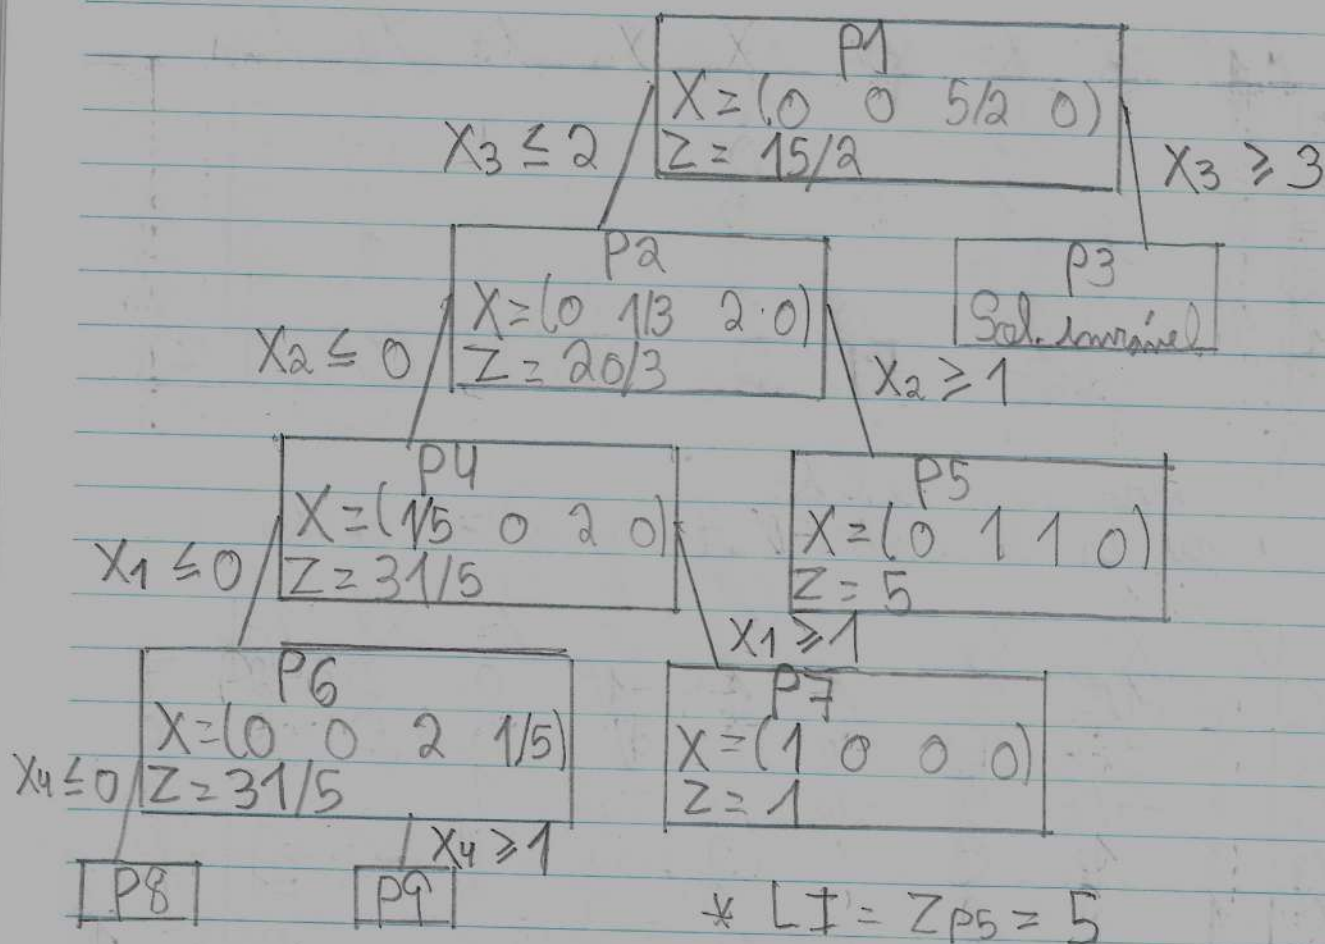 P1
X = (0 0 5/2 0)
Z = 15/2
X3 ≤ 2
X3 ≥ 3
P2
X = (0 1/3 2 0)
Z = 20/3
P3
Sol. inviável
X2 ≤ 0
X2 ≥ 1
P4
X = (1/5 0 2 0)
Z = 31/5
P5
X = (0 1 1 0)
Z = 5
X1 ≤ 0
X1 ≥ 1
P6
X = (0 0 2 1/5)
Z = 31/5
P7
X = (1 0 0 0)
Z = 1
X4 ≤ 0
X4 ≥ 1
P8
P9
* LI = ZP5 = 5